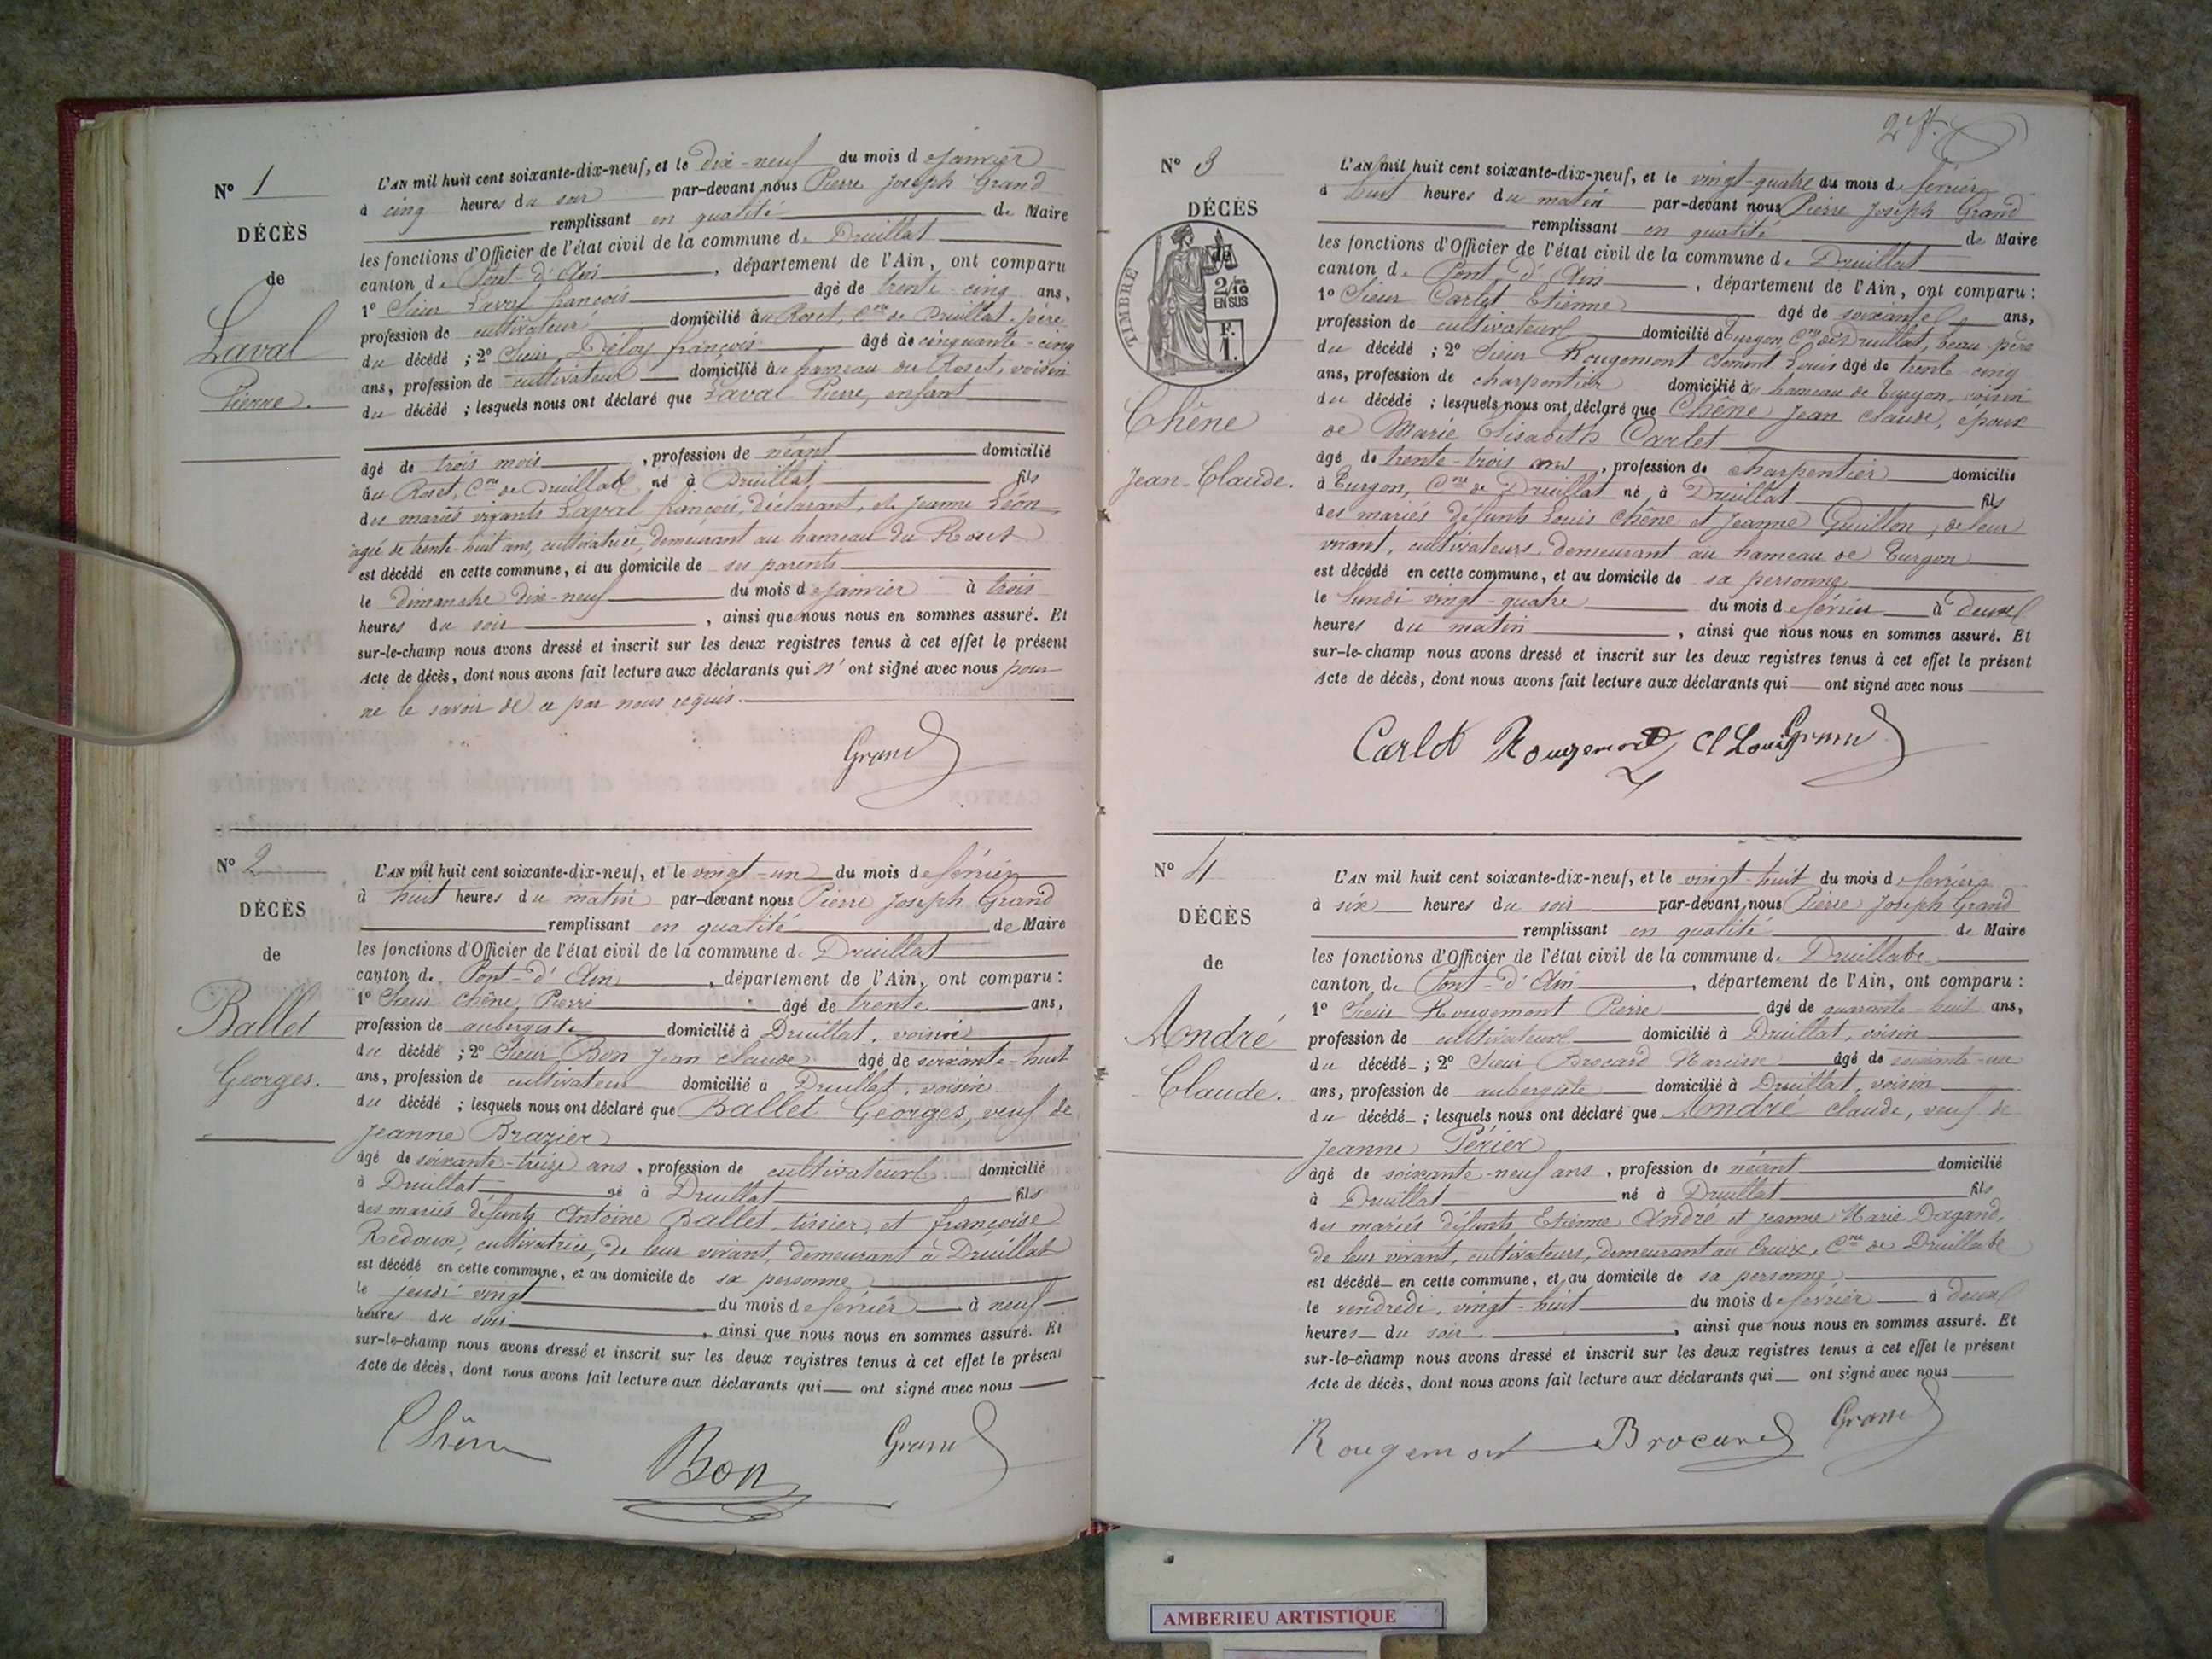 N° 1
DÉCÈS
de
Laval
Pierre.
L'AN mil huit cent soixante-dix-neuf, et le dix-neuf du mois de janvier
à cinq heures du soir par-devant nous Pierre Joseph Grand
remplissant en qualité de Maire
les fonctions d'Officier de l'état civil de la commune de Druillat
canton de Pont-d'Ain, département de l'Ain, ont comparu
1° Sieur Laval françois âgé de trente cinq ans,
profession de cultivateur domicilié au Roset, Cne de Druillat, père
du décédé ; 2° Sieur Déloy françois âgé de cinquante-cinq
ans, profession de cultivateur domicilié au hameau du Roset, voisin
du décédé ; lesquels nous ont déclaré que Laval Pierre, enfant
âgé de trois mois, profession de néant domicilié
au Roset, Cne de Druillat né à Druillat fils
des mariés vivants Laval françois, déclarant, et Jeanne Léon
agée de trente-huit ans, cultivatrice, demeurant au hameau du Roset
est décédé en cette commune, et au domicile de ses parents
le dimanche dix-neuf du mois de janvier à trois
heures du soir, ainsi que nous nous en sommes assuré. Et
sur-le-champ nous avons dressé et inscrit sur les deux registres tenus à cet effet le présent
Acte de décès, dont nous avons fait lecture aux déclarants qui n'ont signé avec nous pour
ne le savoir de ce par nous requis.
Grand
N° 2
DÉCÈS
de
Ballet
Georges.
L'AN mil huit cent soixante-dix-neuf, et le vingt-un du mois de février
à huit heures du matin par-devant nous Pierre Joseph Grand
remplissant en qualité de Maire
les fonctions d'Officier de l'état civil de la commune de Druillat
canton de Pont-d'Ain, département de l'Ain, ont comparu :
1° Sieur Chêne Pierre âgé de trente ans,
profession de aubergiste domicilié à Druillat, voisin
du décédé ; 2° Sieur Bon Jean Claude âgé de soixante-huit
ans, profession de cultivateur domicilié à Druillat, voisin
du décédé ; lesquels nous ont déclaré que Ballet Georges, veuf de
Jeanne Brazier
âgé de soixante-treize ans, profession de cultivateur domicilié
à Druillat né à Druillat fils
des mariés défunts Antoine Ballet, tissier, et françoise
Redoux, cultivatrice, de leur vivant, demeurant à Druillat
est décédé en cette commune, et au domicile de sa personne
le jeudi vingt du mois de février à neuf
heures du soir, ainsi que nous nous en sommes assuré. Et
sur-le-champ nous avons dressé et inscrit sur les deux registres tenus à cet effet le présent
Acte de décès, dont nous avons fait lecture aux déclarants qui ont signé avec nous
Chêne Bon Grand
N° 3
DÉCÈS
TIMBRE
2/10
EN SUS
F.
1.
Chêne
Jean-Claude.
L'AN mil huit cent soixante-dix-neuf, et le vingt-quatre du mois de février
à huit heures du matin par-devant nous Pierre Joseph Grand
remplissant en qualité de Maire
les fonctions d'Officier de l'état civil de la commune de Druillat
canton de Pont-d'Ain, département de l'Ain, ont comparu :
1° Sieur Carlet Etienne âgé de soixante ans,
profession de cultivateur domicilié à Turgon, Cne de Druillat, beau-père
du décédé ; 2° Sieur Rougemont Clément Louis âgé de trente cinq
ans, profession de charpentier domicilié au hameau de Turgon, voisin
du décédé ; lesquels nous ont déclaré que Chêne Jean Claude, époux
de Marie Elisabeth Carlet
âgé de trente-trois ans, profession de charpentier domicilié
à Turgon, Cne de Druillat né à Druillat fils
des mariés défunts Louis Chêne et Jeanne Guillon, de leur
vivant, cultivateurs, demeurant au hameau de Turgon
est décédé en cette commune, et au domicile de sa personne
le lundi vingt-quatre du mois de février à deux
heures du matin, ainsi que nous nous en sommes assuré. Et
sur-le-champ nous avons dressé et inscrit sur les deux registres tenus à cet effet le présent
Acte de décès, dont nous avons fait lecture aux déclarants qui ont signé avec nous
Carlet Rougemont Cl Louis Grand
N° 4
DÉCÈS
de
André
Claude.
L'AN mil huit cent soixante-dix-neuf, et le vingt-huit du mois de février
à six heures du soir par-devant nous Pierre Joseph Grand
remplissant en qualité de Maire
les fonctions d'Officier de l'état civil de la commune de Druillat
canton de Pont-d'Ain, département de l'Ain, ont comparu :
1° Sieur Rougemont Pierre âgé de quarante-huit ans,
profession de cultivateur domicilié à Druillat, voisin
du décédé ; 2° Sieur Brocard Narcisse âgé de soixante-un
ans, profession de aubergiste domicilié à Druillat, voisin
du décédé ; lesquels nous ont déclaré que André Claude, veuf de
Jeanne Périer
âgé de soixante-neuf ans, profession de néant domicilié
à Druillat né à Druillat fils
des mariés défunts Etienne André et Jeanne Marie Dagand,
de leur vivant, cultivateurs, demeurant au Cruix, Cne de Druillat
est décédé en cette commune, et au domicile de sa personne
le vendredi, vingt-huit du mois de février à deux
heures du soir, ainsi que nous nous en sommes assuré. Et
sur-le-champ nous avons dressé et inscrit sur les deux registres tenus à cet effet le présent
Acte de décès, dont nous avons fait lecture aux déclarants qui ont signé avec nous
Rougemont Brocard Grand
AMBERIEU ARTISTIQUE